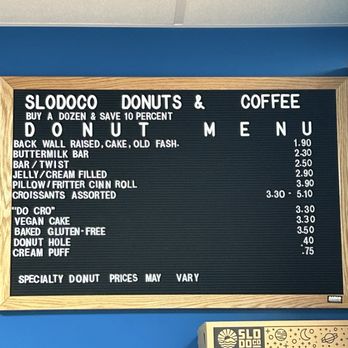 SLODOCO DONUTS & COFFEE
BUY A DOZEN & SAVE 10 PERCENT
DONUT MENU
BACK WALL RAISED, CAKE, OLD FASH. 1.90
BUTTERMILK BAR 2.30
BAR/TWIST 2.50
JELLY/CREAM FILLED 2.90
PILLOW/FRITTER CINN ROLL 3.90
CROISSANTS ASSORTED 3.30 - 5.10
"DO CRO" 3.30
VEGAN CAKE 3.30
BAKED GLUTEN-FREE 3.50
DONUT HOLE .40
CREAM PUFF .75
SPECIALTY DONUT PRICES MAY VARY
SLO
DOCO